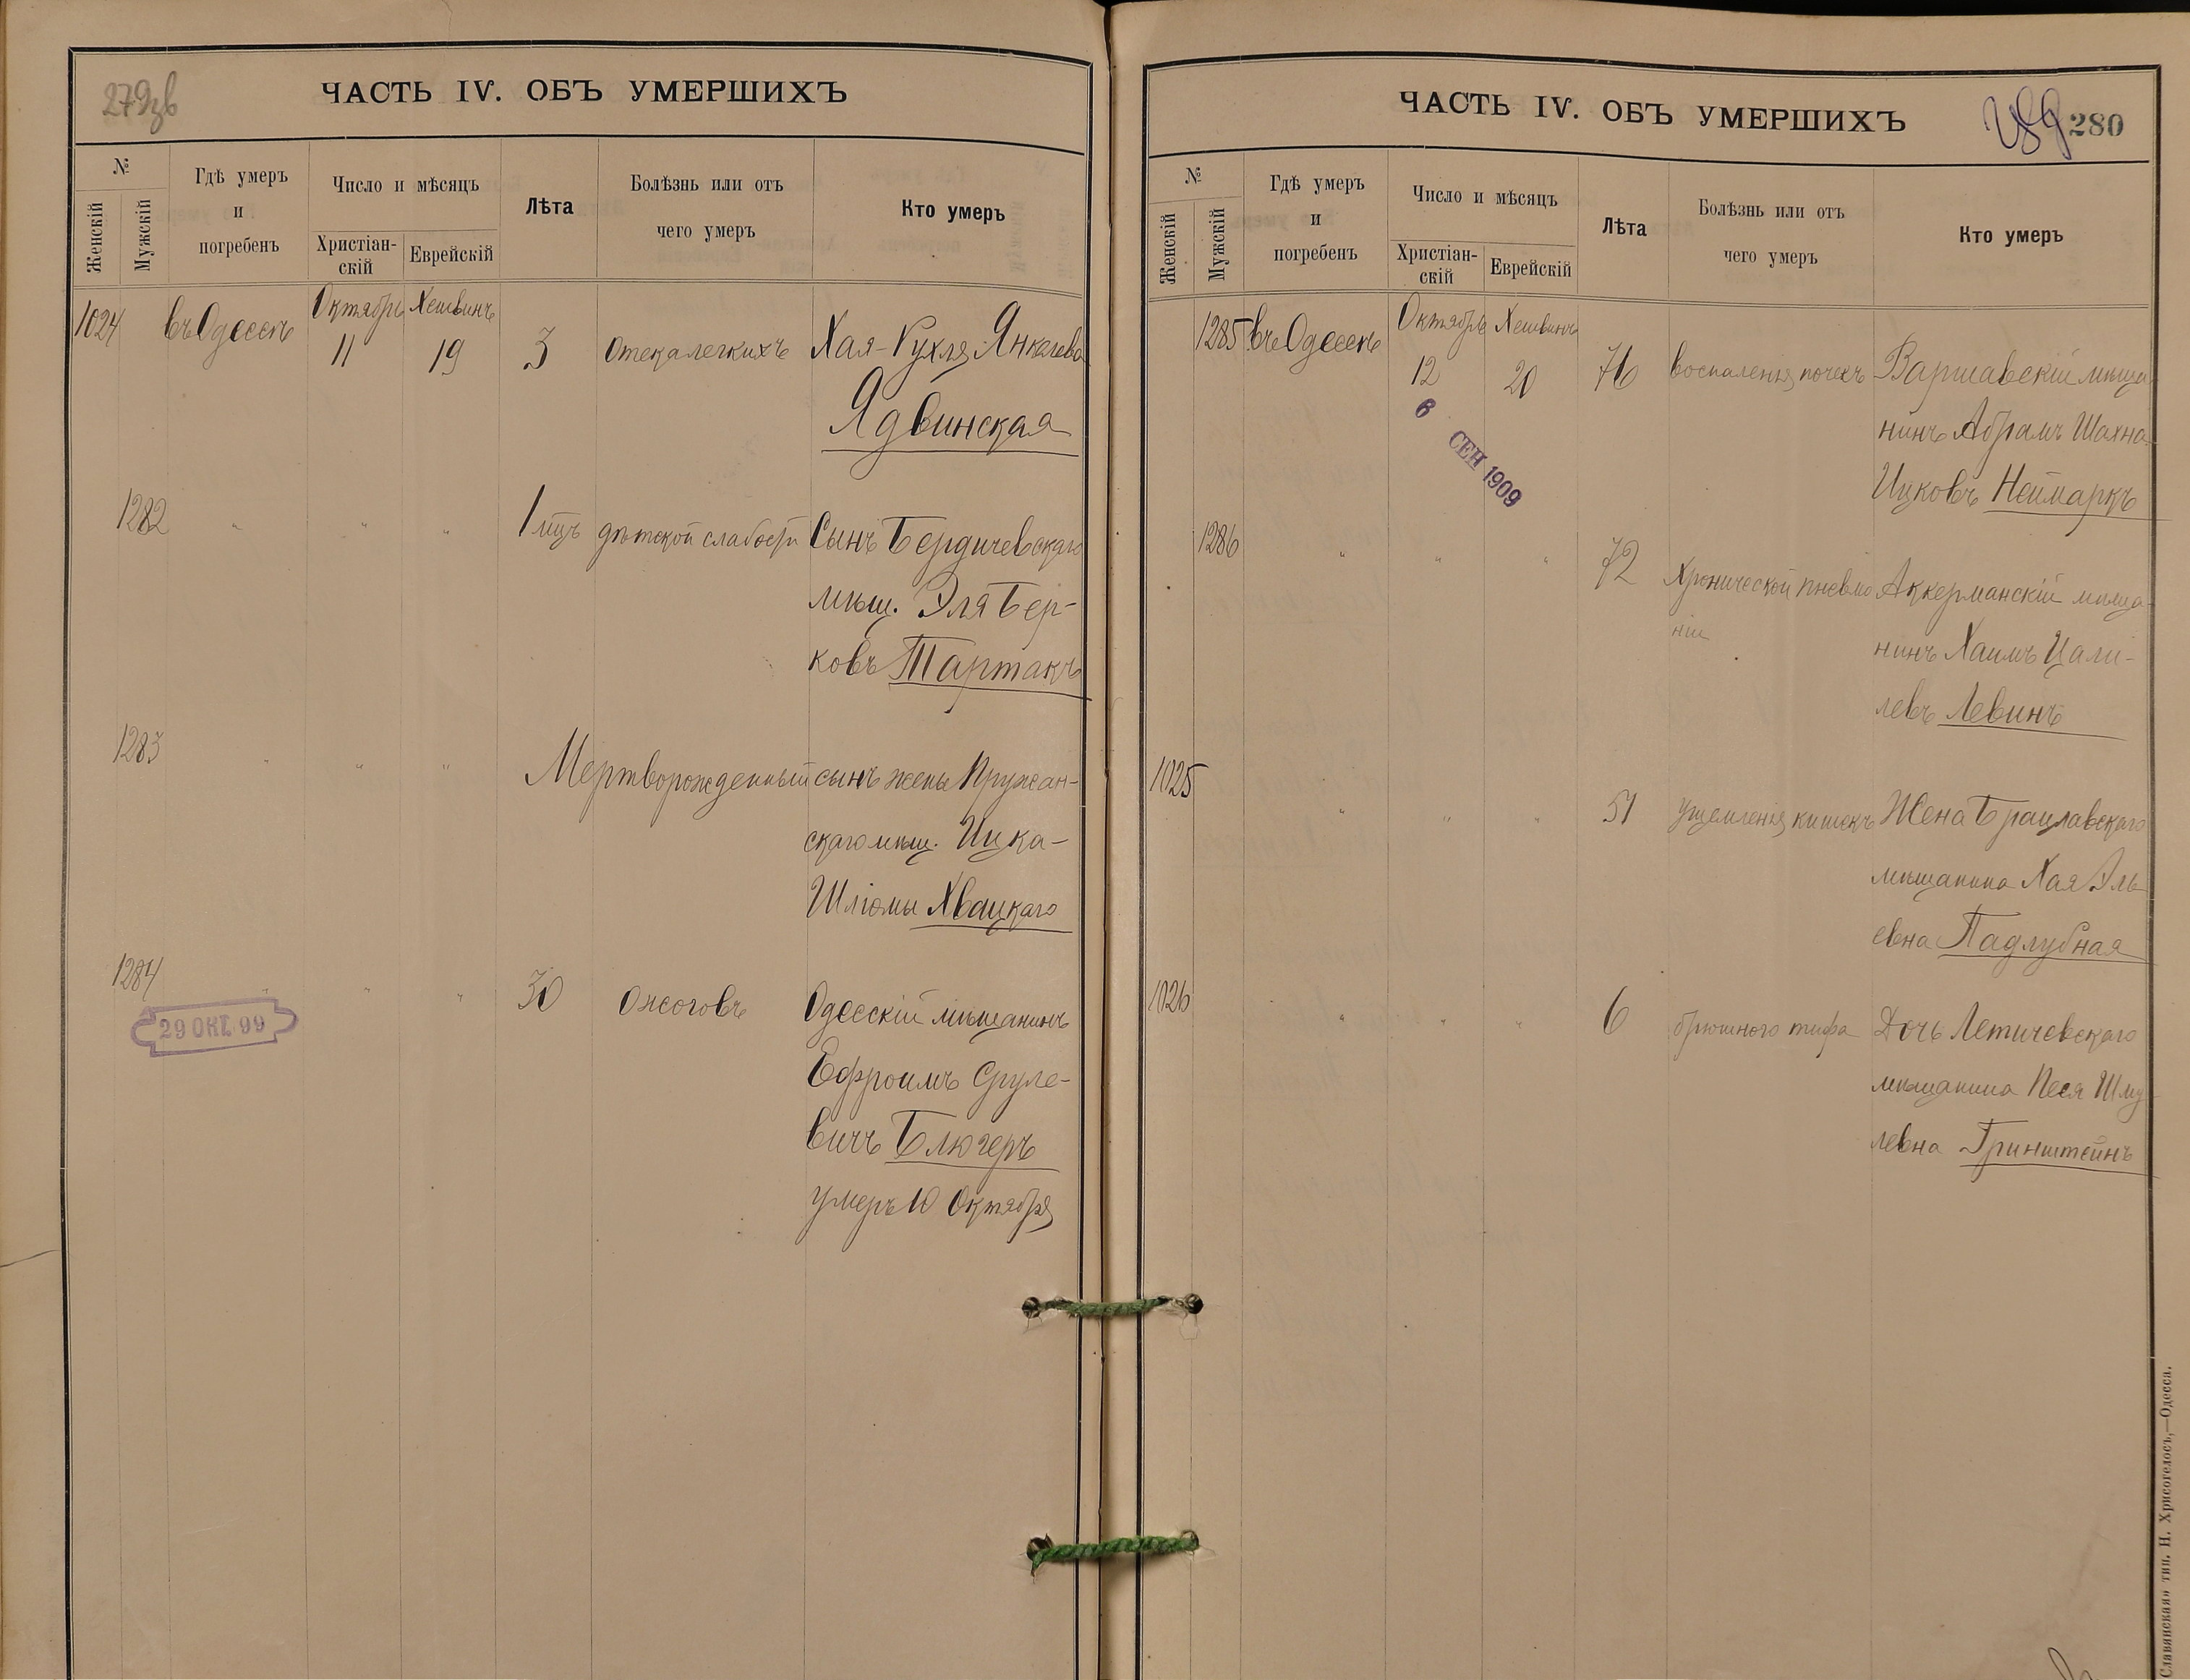 279зв
ЧАСТЬ IV. ОБЪ УМЕРШИХЪ
№
Женскій
Мужскій
Гдѣ умеръ
и
погребенъ
Число и мѣсяцъ
Христіан-
скій
Еврейскій
Лѣта
Болѣзнь или отъ
чего умеръ
Кто умеръ
1024 въ Одессѣ Октябрь 11 Хешвинъ 19 3 Отека легкихъ Хая-Рухля Янкелева
Ядвинская
1282 " " " 1 мцъ дѣтской слабости Сынъ Бердичевскаго
мѣщ. Эля Бер-
ковъ Тартакъ
1283 " " " Мертворожденный сынъ жены Пружан-
скаго мѣщ. Ицка-
Шліомы Хвацкаго
1284 " " " 30 Ожоговъ Одесскій мѣщанинъ
Ефроимъ Сруле-
вичъ Блюгеръ
умеръ 10 Октября
29 ОКТ. 99
ЧАСТЬ IV. ОБЪ УМЕРШИХЪ
280
№
Женскій
Мужскій
Гдѣ умеръ
и
погребенъ
Число и мѣсяцъ
Христіан-
скій
Еврейскій
Лѣта
Болѣзнь или отъ
чего умеръ
Кто умеръ
1285 въ Одессѣ Октябрь 12 Хешвинъ 20 76 воспаленія почекъ Варшавскій мѣща-
нинъ Абрамъ Шахна-
Ицковъ Неймаркъ
6 СЕН 1909
1286 " " " 72 Хронической пневмо Аккерманскій мѣща-
ніи нинъ Хаимъ Цали-
левъ Левинъ
1025 " " " 51 ущемленія кишекъ Жена Брацлавскаго
мѣщанина Хая Эль
евна Падлубная
1026 " " " 6 брюшного тифа Дочь Летичевскаго
мѣщанина Песя Шму
левна Гринштейнъ
Славянская тип. Н. Хрисогелосъ,—Одесса.